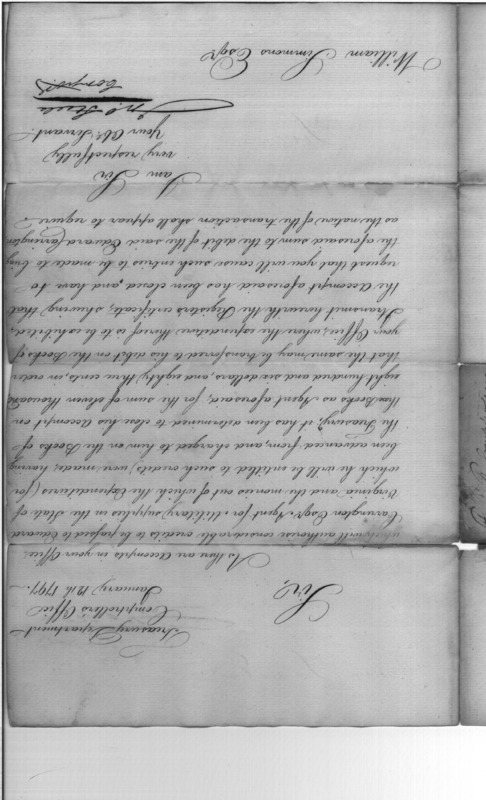 Treasury Department
Comptrollers Office
January 12th 1797.
Sir,
As there are Accompts in your Office,
which will authorise considerable credits to be passed to Edward
Carrington Esqr. Agent for Military supplies in the State of
Virginia and the monies out of which the Expenditures (for
which he will be entitled to such credits) were made, having
been advanced from, and charged to him on the Books of
the Treasury; it has been determined to close his Accompt on
those Books as Agent aforesaid, for the sum of eleven thousand
eight hundred and six dollars, and eighty three cents, in order
that the same may be transferred to his debit on the Books of
your Office, where the expenditure thereof is to be exhibited,
I transmit herewith the Registers certificate, shewing that
the Accompt aforesaid has been closed, and have to
request that you will cause such entries to be made to bring
the aforesaid sum to the debit of the said Edward Carrington
as the nature of the transaction shall appear to require.
I am Sir
very respectfully
Your Obt. Servant.
Jno. Steele
Compr.
William Simmons Esqr.